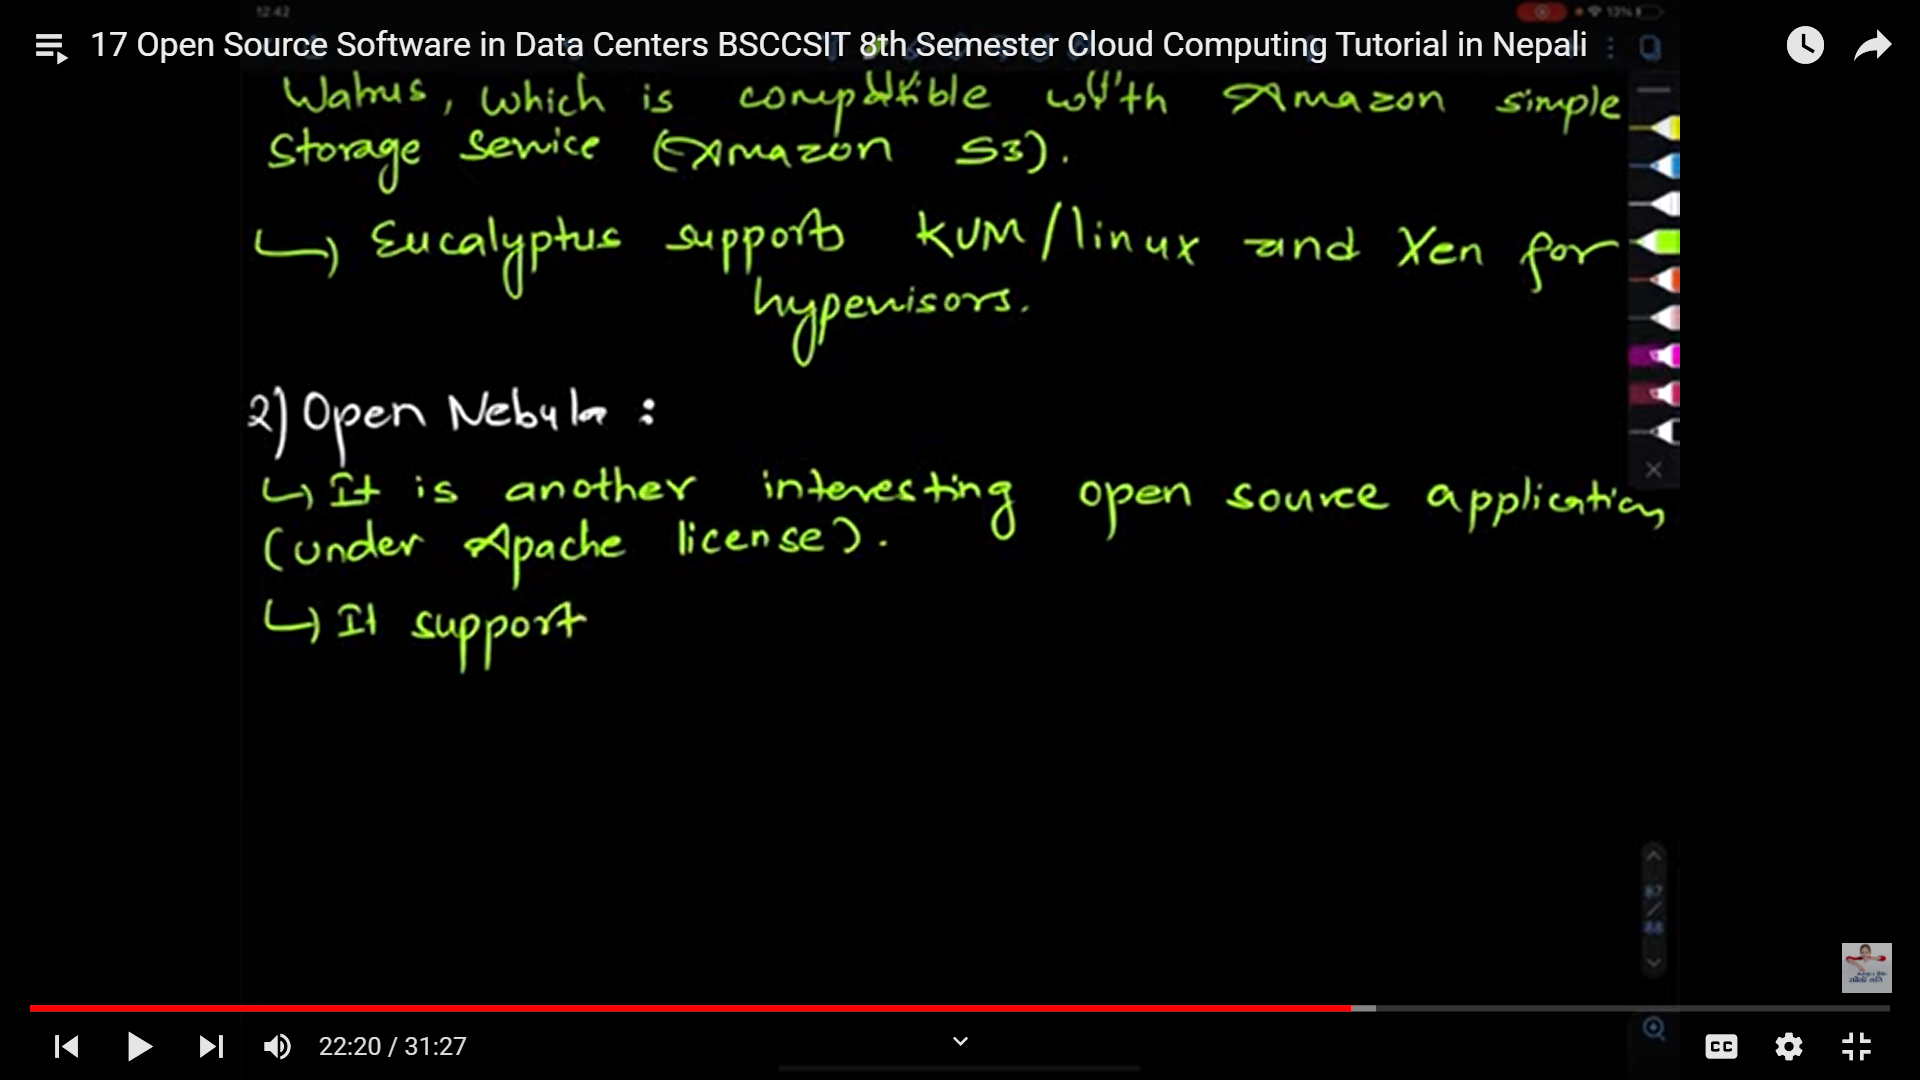 12:42
13%
17 Open Source Software in Data Centers BSCCSIT 8th Semester Cloud Computing Tutorial in Nepali
Walrus, which is compatible with Amazon simple
Storage Service (Amazon S3).
↳ Eucalyptus supports KVM/linux and Xen for
hypervisors.
2) Open Nebula :
↳ It is another interesting open source application
(under Apache license).
↳ It support
87
/
88
22:20 / 31:27
CC